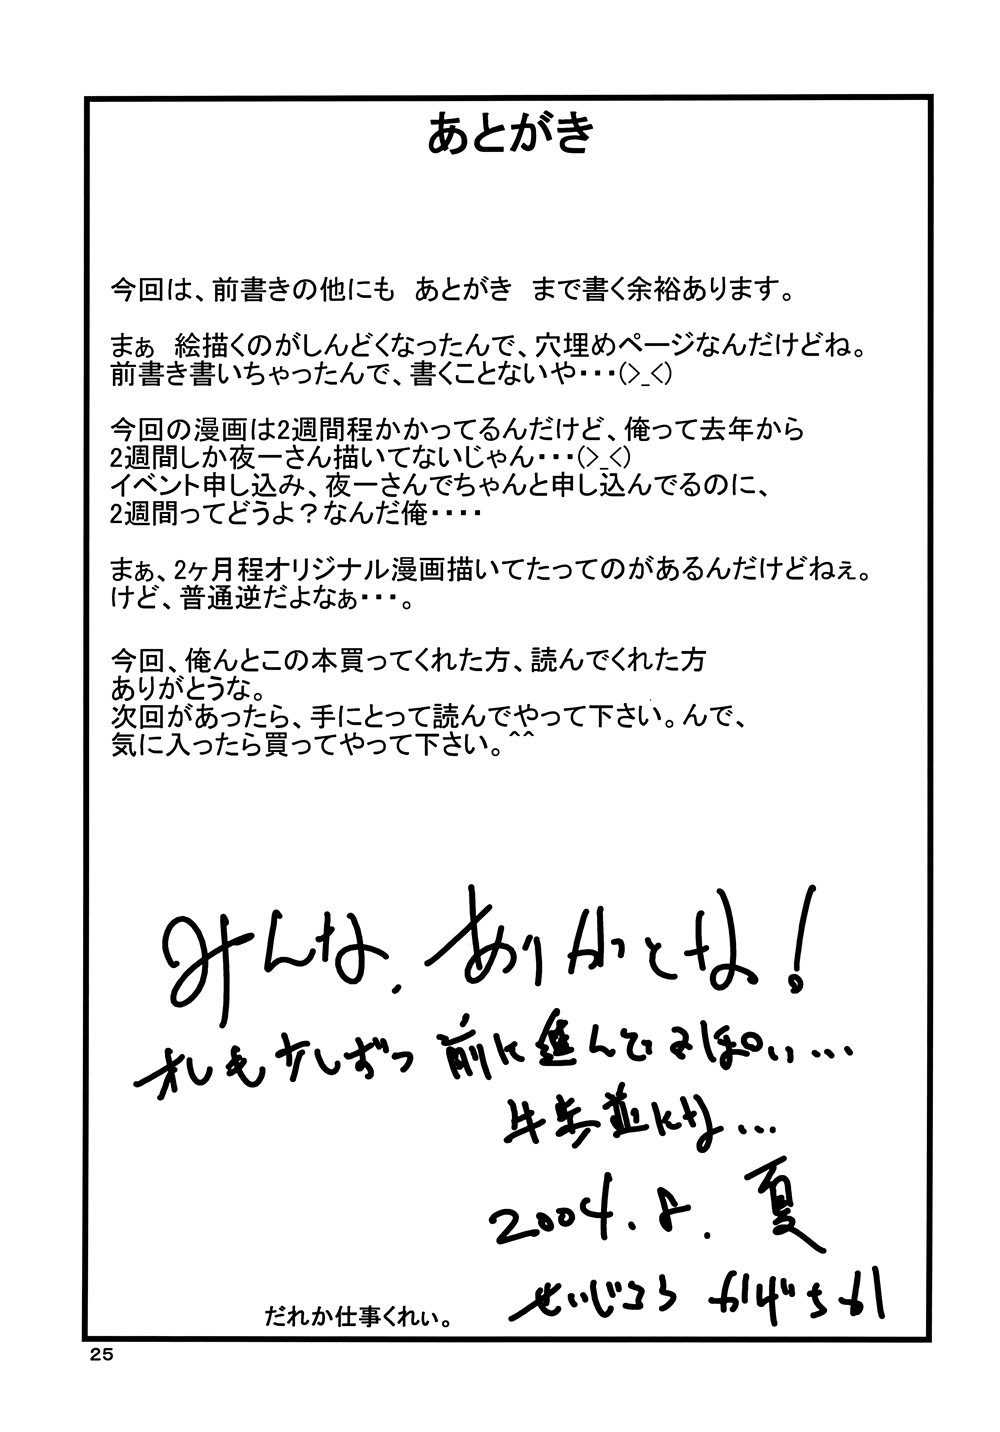 あとがき
今回は、前書きの他にも　あとがき　まで書く余裕あります。
まぁ　絵描くのがしんどくなったんで、穴埋めページなんだけどね。
前書き書いちゃったんで、書くことないや・・・(>_<)
今回の漫画は2週間程かかってるんだけど、俺って去年から
2週間しか夜一さん描いてないじゃん・・・(>_<)
イベント申し込み、夜一さんでちゃんと申し込んでるのに、
2週間ってどうよ？なんだ俺・・・・
まぁ、2ヶ月程オリジナル漫画描いてたってのがあるんだけどねぇ。
けど、普通逆だよなぁ・・・。
今回、俺んとこの本買ってくれた方、読んでくれた方
ありがとうな。
次回があったら、手にとって読んでやって下さい。んで、
気に入ったら買ってやって下さい。^^
みんな、ありがとな！
オレも少しずつ前に進んでるっぽい…
牛歩並にな…
2004.8.夏
せいじろう かげちか
だれか仕事くれぃ。
25